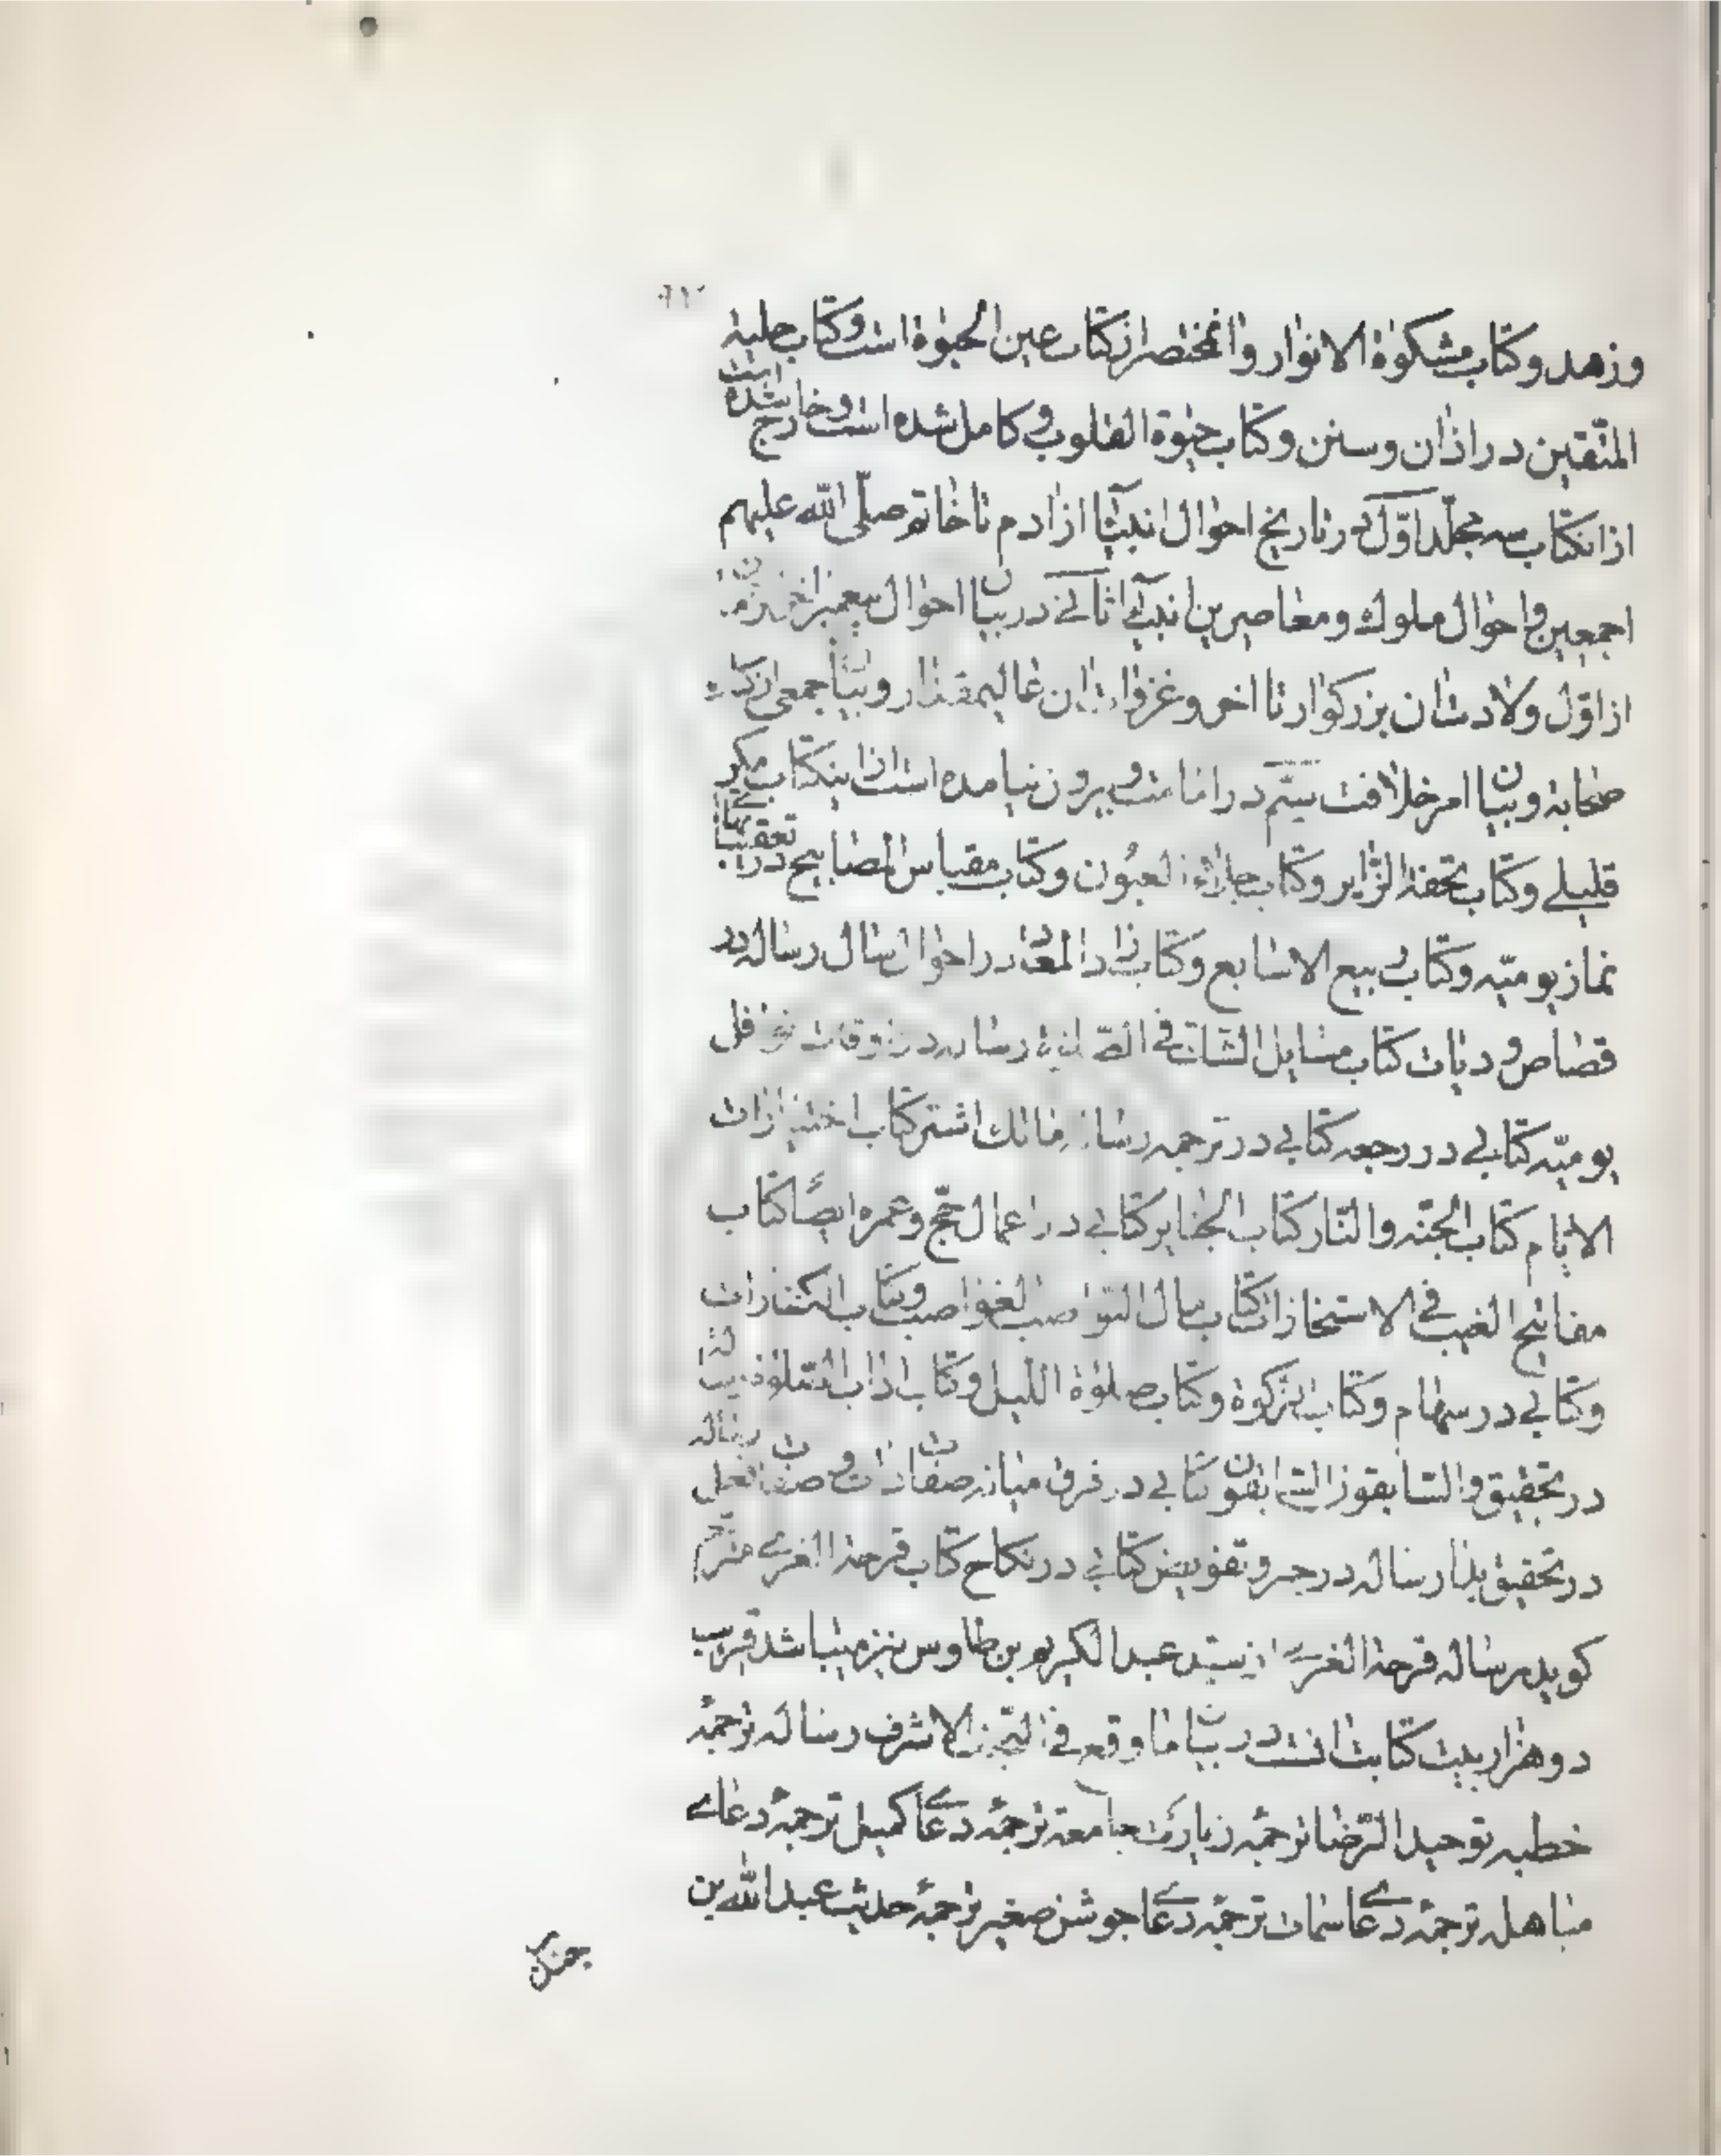 وزهد وکتاب مشکوة الانوار وان مختصر از کتاب عین الحیوة است وکتاب حلیة
المتقین در اداب وسنن وکتاب حیوة القلوب وکامل شده است وخارج شده است
از انکتاب سه مجلد اول در تاریخ احوال انبیا از ادم تا خاتم صلی الله علیهم
اجمعین واحوال ملوک ومعاصرین انبیا ثانی در بیان احوال پیغمبر اخر
از اول ولادت ان بزرکوار تا اخر وغزوات ان عالیمقدار وبیان جمعی از
صحابه وبیان امر خلافت سیم در امامت وبیرون نیامده است از اینکتاب مکر
قلیلی وکتاب تحفة الزایر وکتاب جلاء العیون وکتاب مقباس المصابیح در تعقیبات
نماز یومیه وکتاب ربیع الاسابیع وکتاب زاد المعاد در احوال سال رساله در
قصاص ودیات کتاب مسایل الشک فی الصلوة رساله در اوقات نوافل
یومیه کتابی در رجعه کتابی در ترجمه رساله مالک اشتر کتاب اختیارات
الایام کتاب الجنه والنار کتاب الجنایز کتابی در اعمال حج وعمره ایضا کتاب
مفاتیح الغیب فی الاستخارات کتاب مال النواصب وکتاب الکفارات
وکتابی در سهام وکتاب الزکوة وکتاب صلوة اللیل وکتاب اداب الصلوة رساله
در تحقیق والسابقون السابقون کتابی در فرق میانه صفات ذات وصفات فعل رساله
در تحقیق بدا رساله در جبر وتفویض کتابی در نکاح کتاب فرحة الغری مترجم
کوید رساله فرحة الغری از سید عبد الکریم بن طاوس نیز میباشد قریب
دو هزار بیت کتابت است در بیان ما وقع فی النجف الاشرف رساله ترجمهٔ
خطبه توحید الرضا ترجمهٔ زیارت جامعة ترجمهٔ دعای کمیل ترجمهٔ دعای
مباهله ترجمهٔ دعای سمات ترجمهٔ دعای جوشن صغیر ترجمهٔ حدیث عبد الله بن
جندب